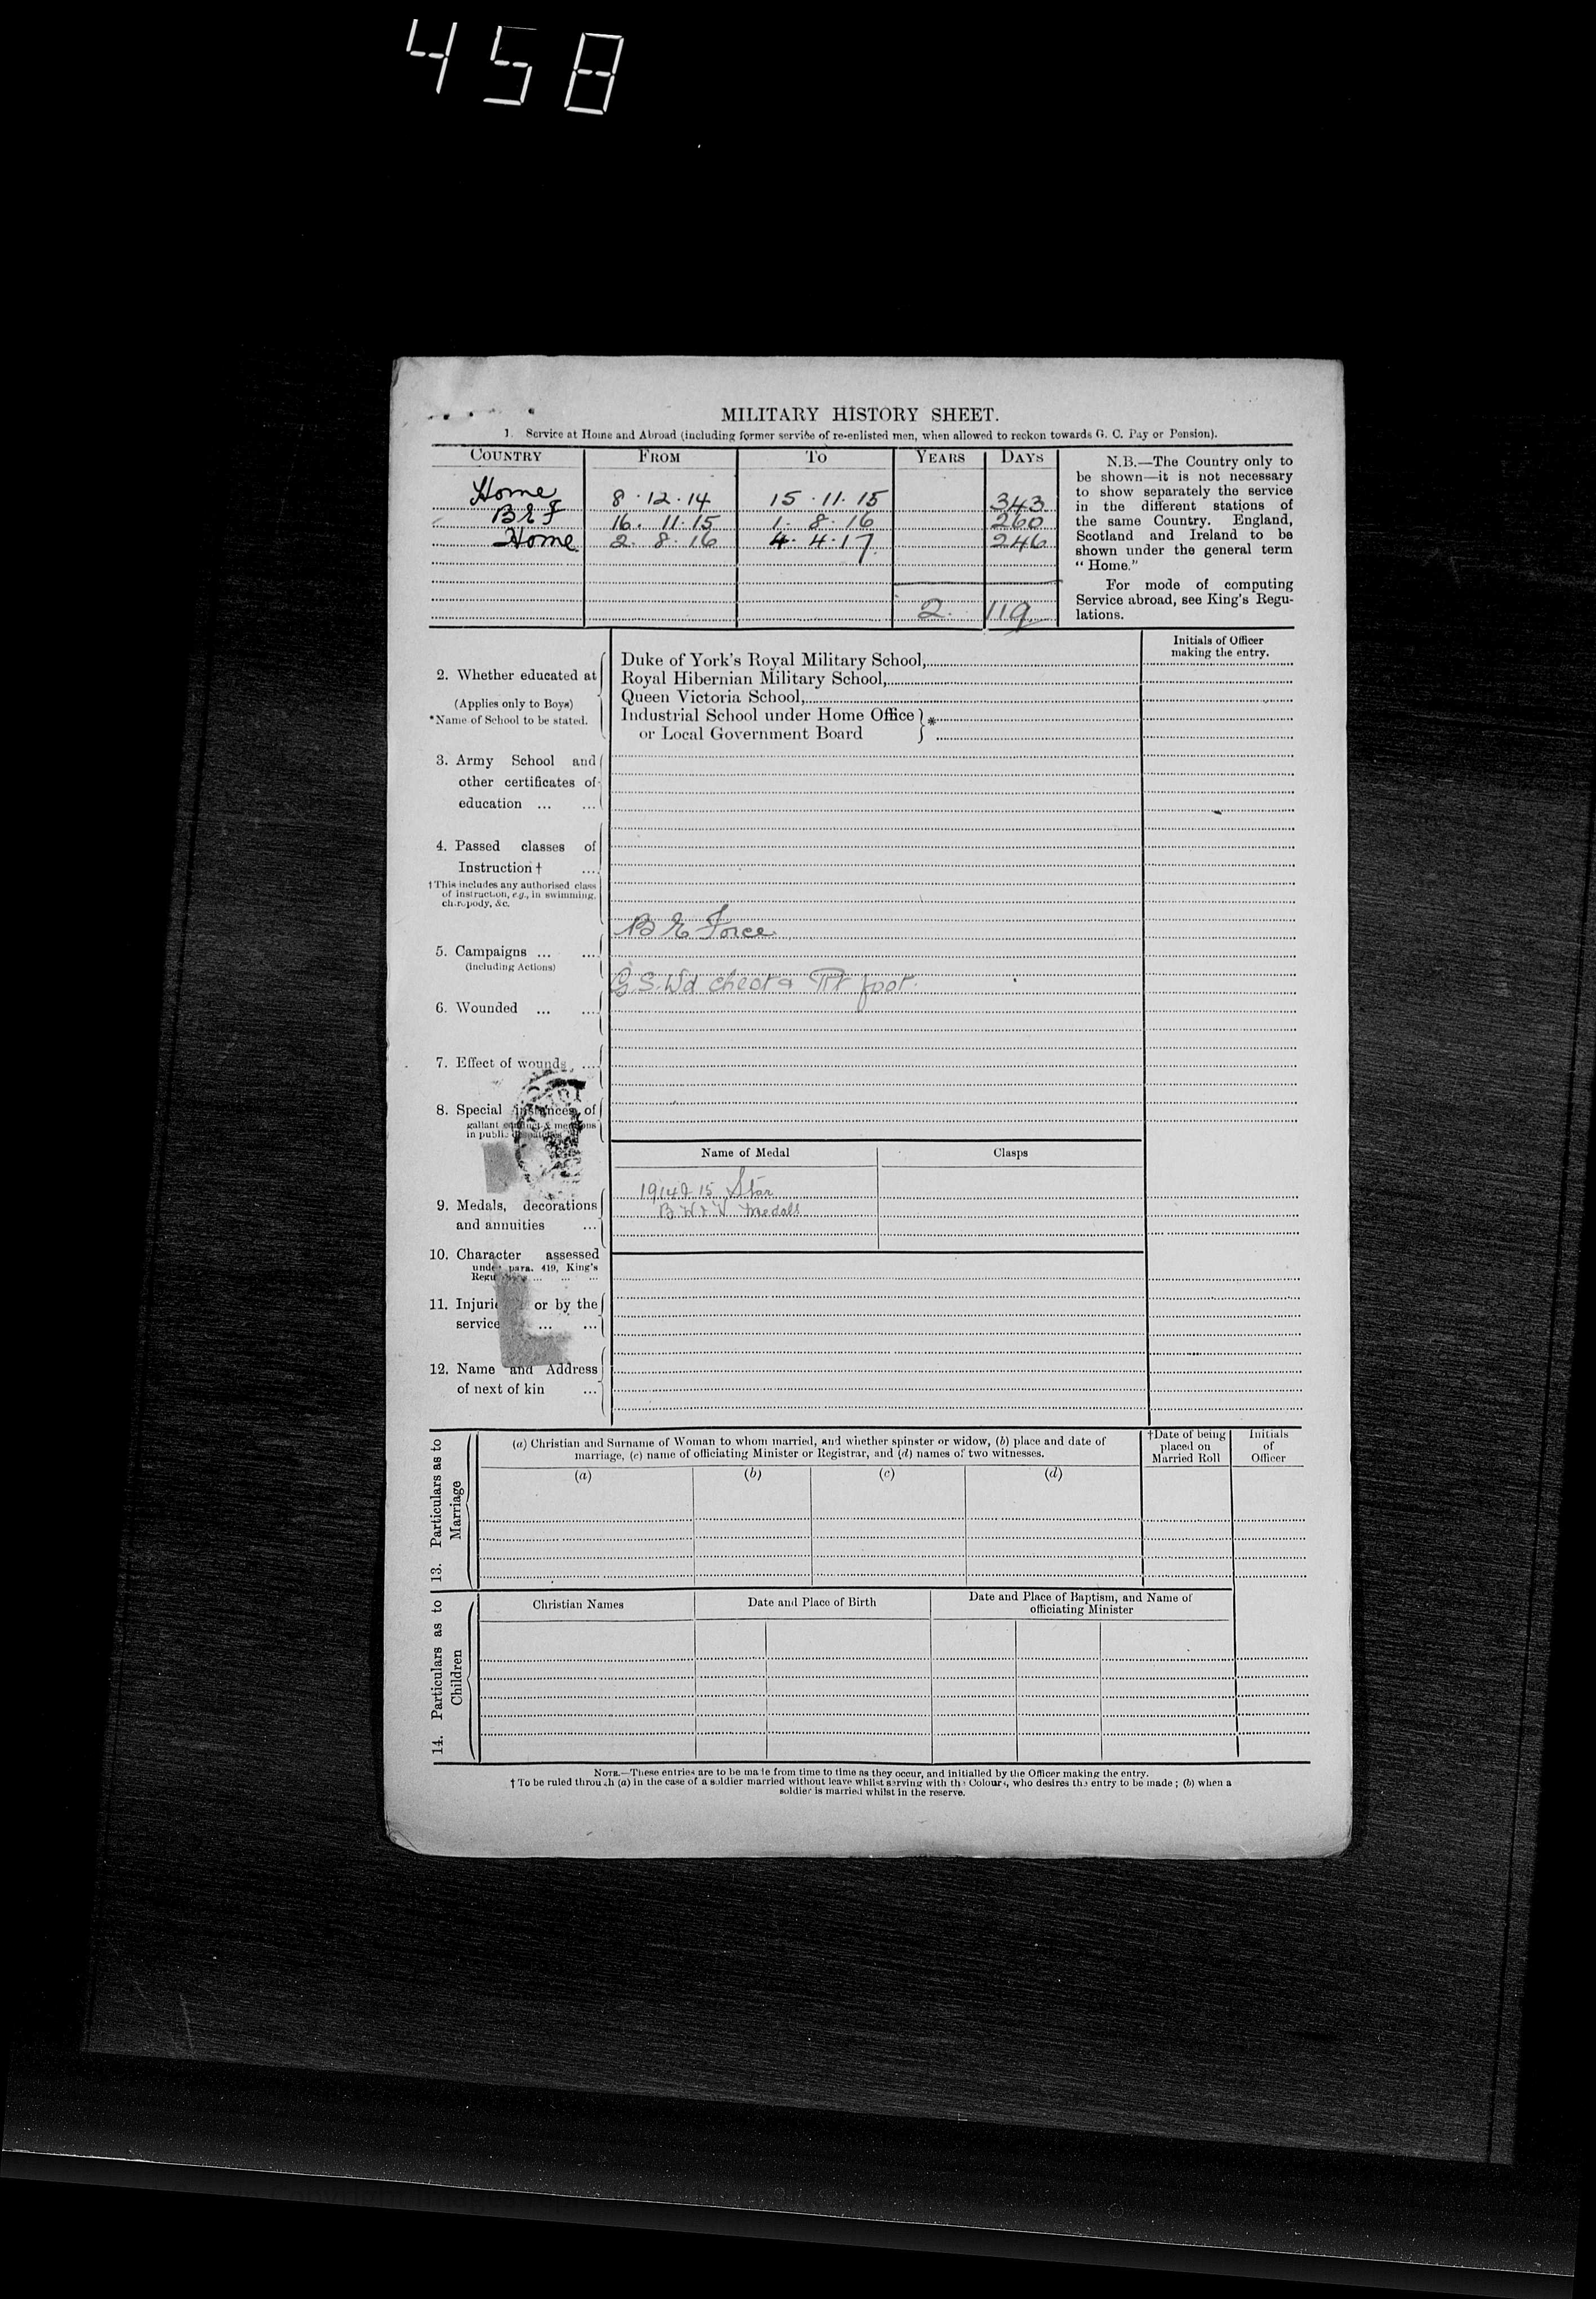 458
MILITARY HISTORY SHEET.
1. Service at Home and Abroad (including former service of re-enlisted men, when allowed to reckon towards G. C. Pay or Pension).
COUNTRY FROM TO YEARS DAYS
Home 8.12.14 15.11.15 343
B E F 16.11.15 1.8.16 260
Home 2.8.16 4.4.17 246
2. 119
N.B.—The Country only to
be shown—it is not necessary
to show separately the service
in the different stations of
the same Country. England,
Scotland and Ireland to be
shown under the general term
“ Home.”
For mode of computing
Service abroad, see King's Regu-
lations.
Initials of Officer
making the entry.
2. Whether educated at
(Applies only to Boys)
*Name of School to be stated.
Duke of York's Royal Military School,
Royal Hibernian Military School,
Queen Victoria School,
Industrial School under Home Office } *
or Local Government Board
3. Army School and
other certificates of
education ... ...
4. Passed classes of
Instruction † ...
† This includes any authorised class
of instruction, e.g., in swimming,
chiropody, &c.
B E Force
5. Campaigns ... ...
(including Actions)
G.S.Wd chest & Rt foot.
6. Wounded ... ...
7. Effect of wounds ...
8. Special instances of
gallant conduct & mentions
in public
Name of Medal Clasps
1914 & 15 Star
B W & V Medals
9. Medals, decorations
and annuities ...
10. Character assessed
under para. 419, King's
11. or by the
service ... ...
12. Name and Address
of next of kin ...
13. Particulars as to
Marriage
(a) Christian and Surname of Woman to whom married, and whether spinster or widow, (b) place and date of
marriage, (c) name of officiating Minister or Registrar, and (d) names of two witnesses.
†Date of being
placed on
Married Roll
Initials
of
Officer
(a) (b) (c) (d)
14. Particulars as to
Children
Christian Names Date and Place of Birth Date and Place of Baptism, and Name of
officiating Minister
NOTE.—These entries are to be made from time to time as they occur, and initialled by the Officer making the entry.
† To be ruled through (a) in the case of a soldier married without leave whilst serving with the Colours, who desires the entry to be made ; (b) when a
soldier is married whilst in the reserve.